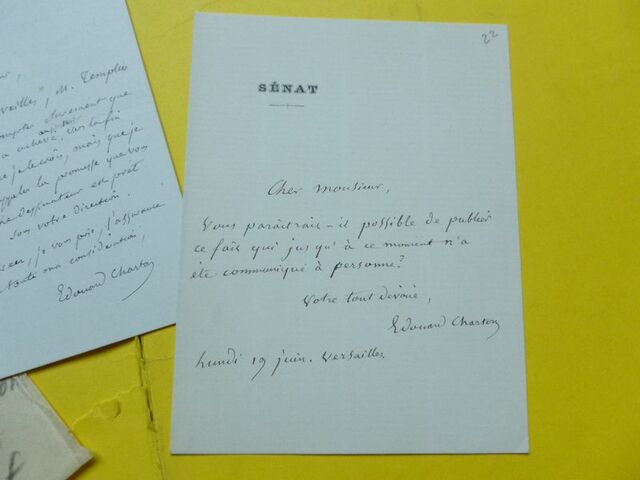 veilles", M. Templier
compter sûrement que
a achevé, vers la fin
je le crois, mais que je
rappeler la promesse que vous
dessinateur est prêt
sous votre direction.
je vous prie, l'assurance
toute ma considération,
Edouard Charton
22
SÉNAT
Cher monsieur,
Vous paraîtrait-il possible de publier
ce fait qui jusqu'à ce moment n'a
été communiqué à personne?
Votre tout dévoué,
Edouard Charton
Lundi 19 juin. Versailles.